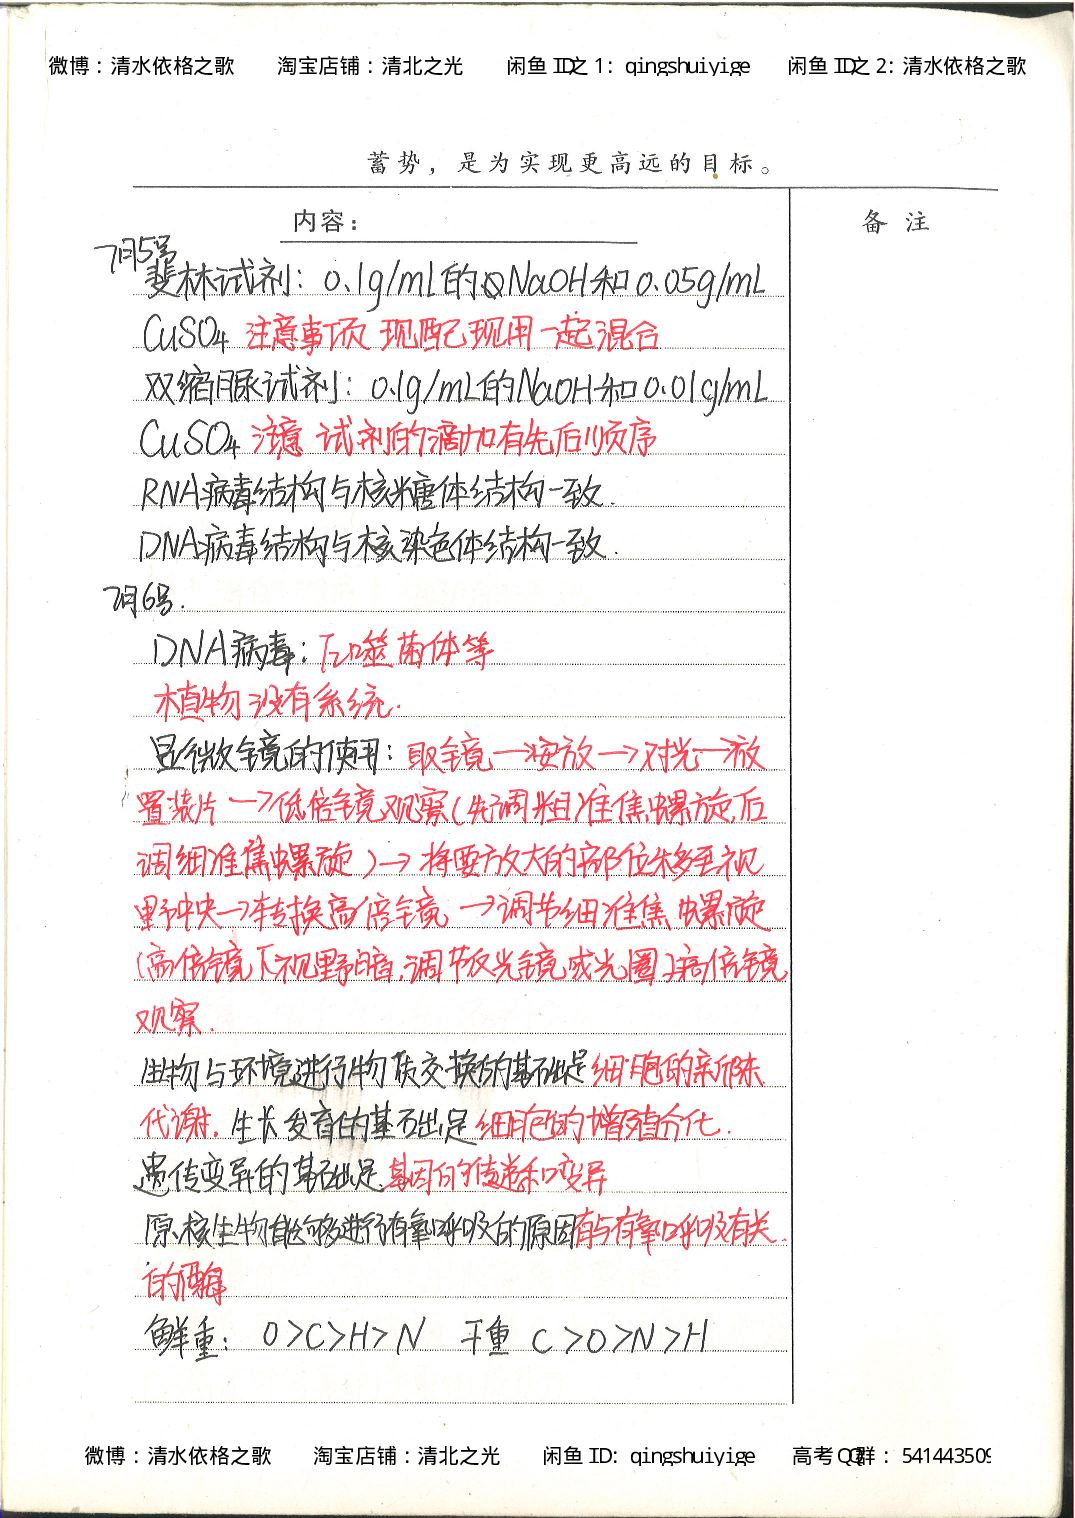 微博：清水依格之歌 淘宝店铺：清北之光 闲鱼 ID之 1: qingshuiyige 闲鱼 ID之 2: 清水依格之歌
蓄势，是为实现更高远的目标。
内容： 备注
7月5号
斐林试剂：0.1g/ml的NaOH和0.05g/mL
CuSO4 注意事项 现配现用 一起混合
双缩脲试剂：0.1g/mL的NaOH和0.01g/mL
CuSO4 注意 试剂的滴加有先后顺序
RNA病毒结构与核糖体结构一致.
DNA病毒结构与核染色体结构一致.
7月6号.
DNA病毒：T2噬菌体等
植物没有系统.
显微镜的使用：取镜→安放→对光→放
置装片→低倍镜观察(先调粗准焦螺旋,后
调细准焦螺旋)→将要放大的部位移至视
野中央→转换高倍镜→调节细准焦螺旋
(高倍镜下视野暗,调节反光镜或光圈)高倍镜
观察.
生物与环境进行物质交换的基础是细胞的新陈
代谢.生长发育的基础是细胞的增殖分化.
遗传变异的基础是基因的传递和变异
原核生物能够进行有氧呼吸的原因有与有氧呼吸有关
的酶
鲜重：O>C>H>N 干重 C>O>N>H
微博：清水依格之歌 淘宝店铺：清北之光 闲鱼 ID: qingshuiyige 高考QQ群：541443509